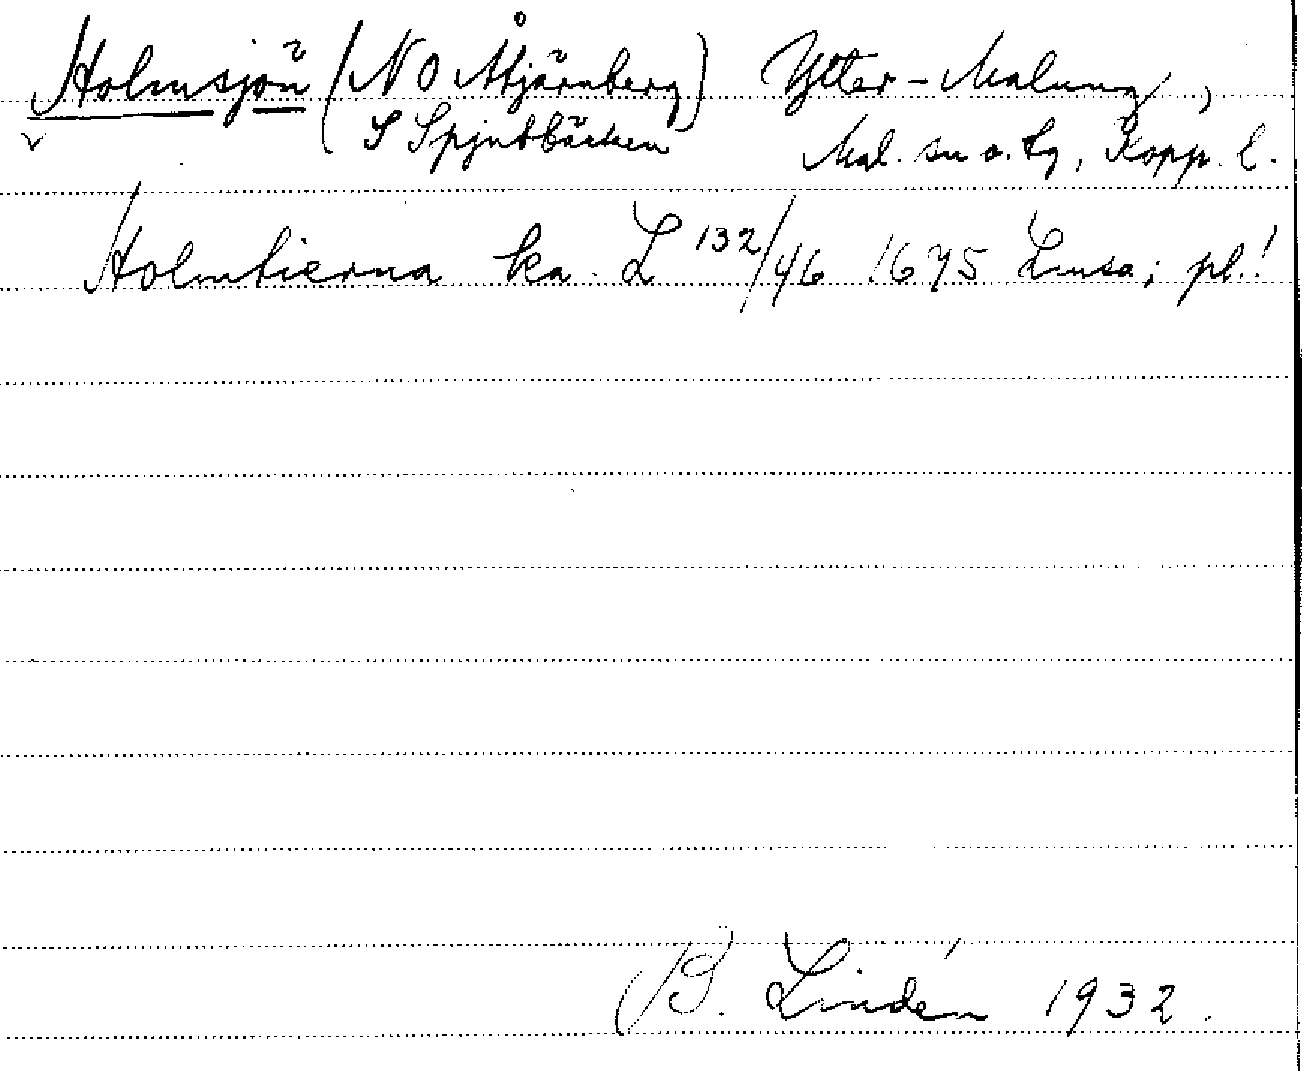 Holmsjön (NO Åtjärnberg) Ytter-Malung,
S Spjutbäcken Mal. sn o. tg, Kopp. l.
Holmtierna ka. L 132/46 1675 Limsa; pl.!
B. Lindén 1932.